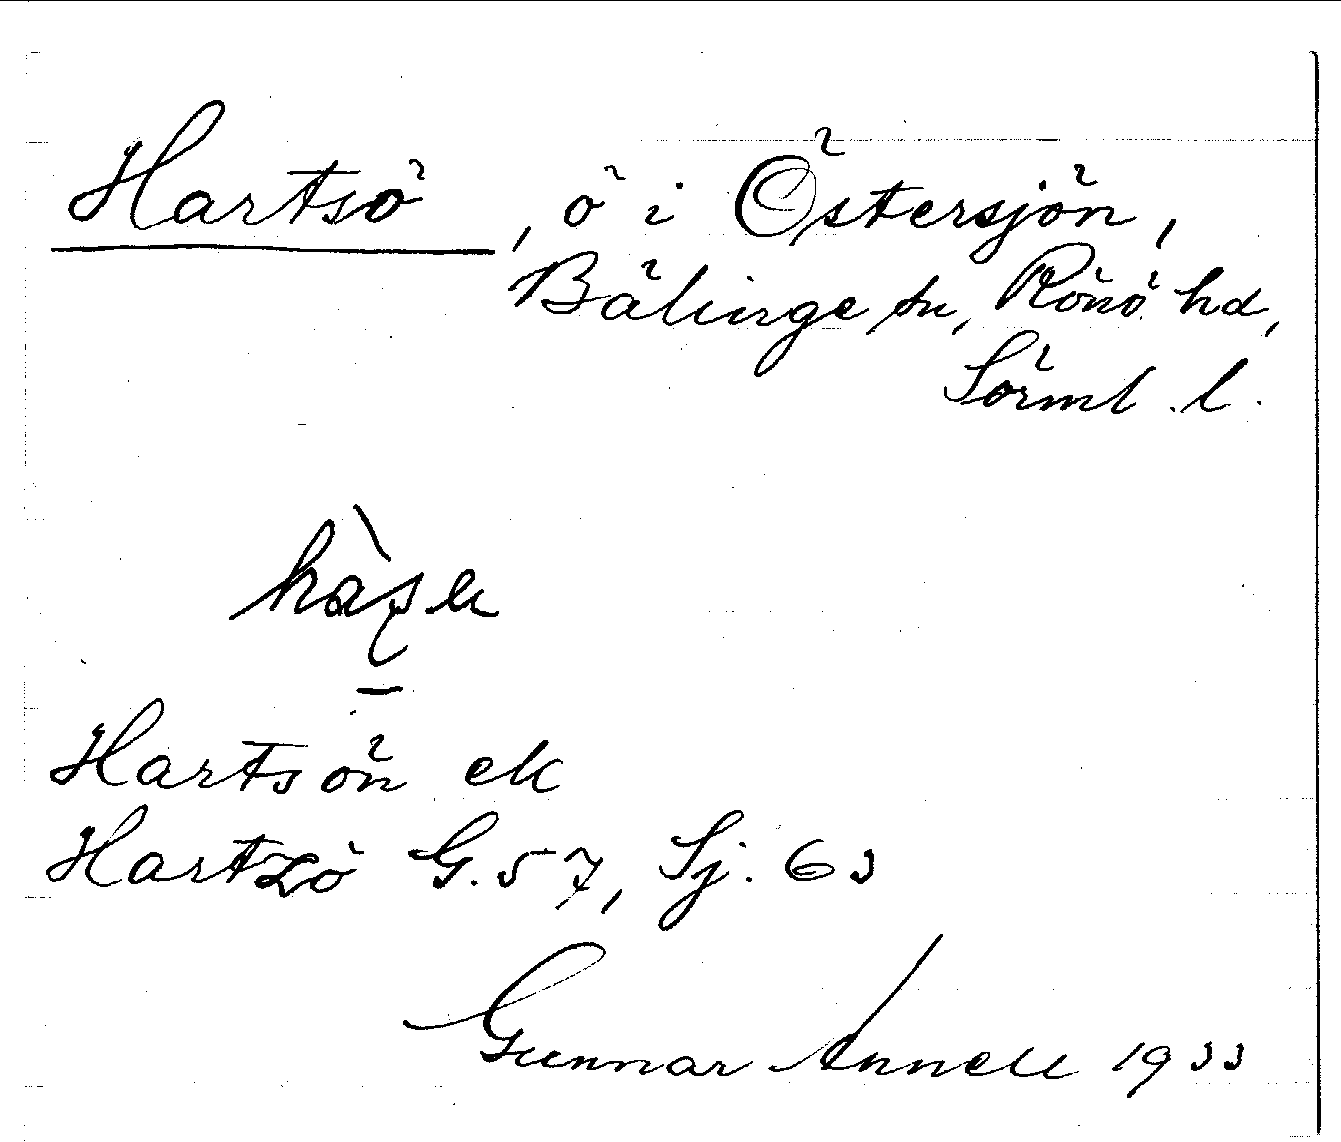 Hartsö, ö i Östersjön,
Bälinge sn, Rönö hd,
Sörml. l.
Hartsön ek
Hartzö G. 57, Sj. 63
Gunnar Annell 1933